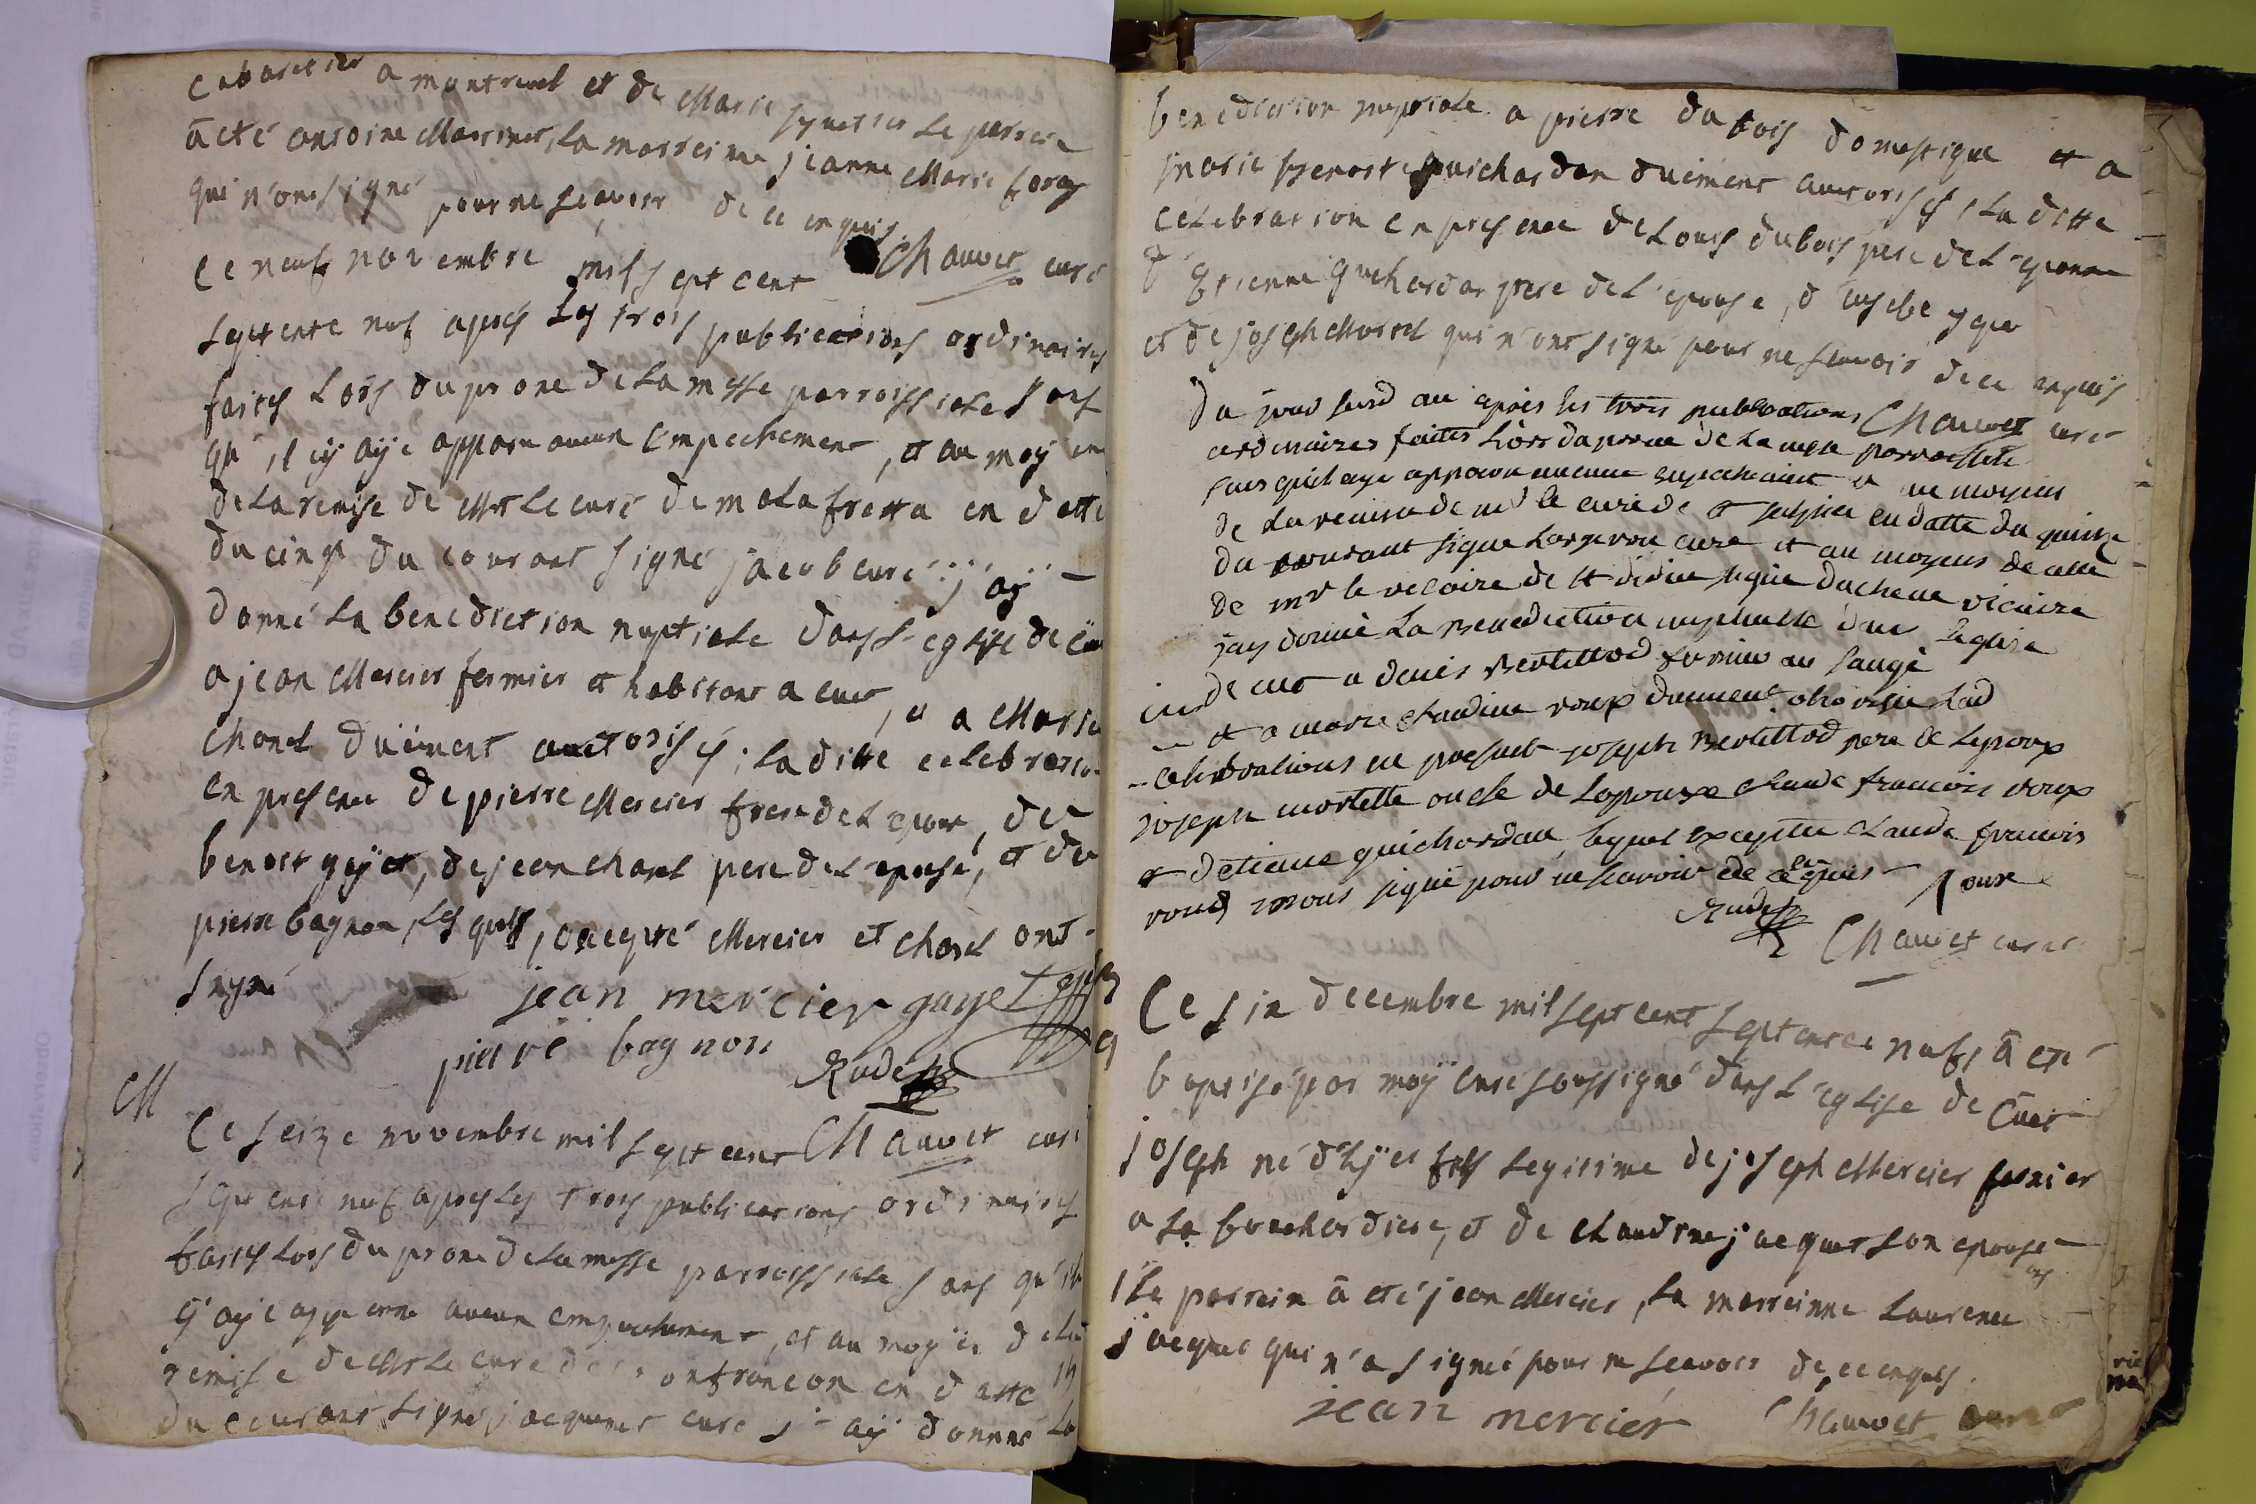 cabaretier a montrevel et de Marie le perrein
a eté antoine la marreine jeanne Marie
qui n'ont signé pour ne scavoir de ce enquis.
Chauvet curé
Ce neuf novembre mil sept cent
septente neuf apres les trois publications ordinaires
faites lors du prone de la messe parroissiale sans
qu'il ÿ aÿe apparu aucun empechement, et au moÿ en
de la remise de Mr le curé de malafretta en datte
du cinq du courant signé jacob curé j'aÿ
donné la benediction nuptiale dans l'eglise de Cuet
a jean Mercier fermier et habitant a cuet, et a Marie
Charel duëment auctorisés ; la ditte celebration
en presence de pierre Mercier frere de l'epoux, de
benoit gayet, de jean Charel pere de l'epouse, et de
pierre bagnon, les quels, excepté Mercier et Charel ont
signé
jean mercier gayet
pierre bagnon
Rude
M
Chauvet curé
Ce seize novembre mil sept cent
septente neuf apres les trois publications ordinaires
faites lors du prone de la messe parroissiale sans qu'il
ÿ aÿe apparu aucun empechement, et au moÿen de la
remise de Mr le curé de en datte
du courant signé jacquinet curé j'aÿ donné la
benediction nuptiale a pierre dubois domestique et a
marie benoite guichardan duëment auctorisés, la ditte
celebration en presence de Louis dubois pere de l'epoux
d'Etienne guichardan pere de l'epouse, d'
et de joseph Morel qui n'ont signé pour ne scavoir de ce enquis
Chauvet curé
Du jour susd après les trois publications
ordinaires faites lors du prone de la messe parroissiale
sans qu'il aye apparu aucun empechement et au moyen
de la remise de mr le curé de St sulpice en datte du quinze
du courant signé curé et au moyen de celle
de mr le vicaire de St didier signé duchene vicaire
jay donné la Benediction nuptialle dans leglise
de cuet a denis Bertillod fermier au saugé
et a marie claudine roux duement lad
celebrations en presence joseph Bertillod pere de lepoux
joseph mortelle oncle de lepouse claude francois roux
et detiene guichardan lequel excepter claude francois
roux nons signé pour ne savoir de ce enquis
Roux
Rude
Chauvet curé
Ce six decembre mil sept cent septente neuf, a eté
baptisé par moÿ curé soussigné dans l'eglise de Cuet
joseph né d'hÿer fils legitime de joseph Mercier fermier
a la bouchardiere, et de claudine jacquet son epouse
le parrein a eté jean Mercier, la marreinne Laurence
jacquet qui n'a signé pour ne scavoir de ce enquis.
jean mercier Chauvet curé